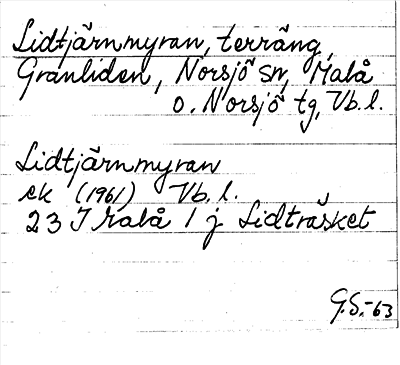 Lidtjärnmyran, terräng,
Granliden, Norsjö sn, Malå
o. Norsjö tg, Vb. l.
Lidtjärnmyran
ek (1961) Vb. l.
23 I Malå 1 j Lidträsket
G.S.-63